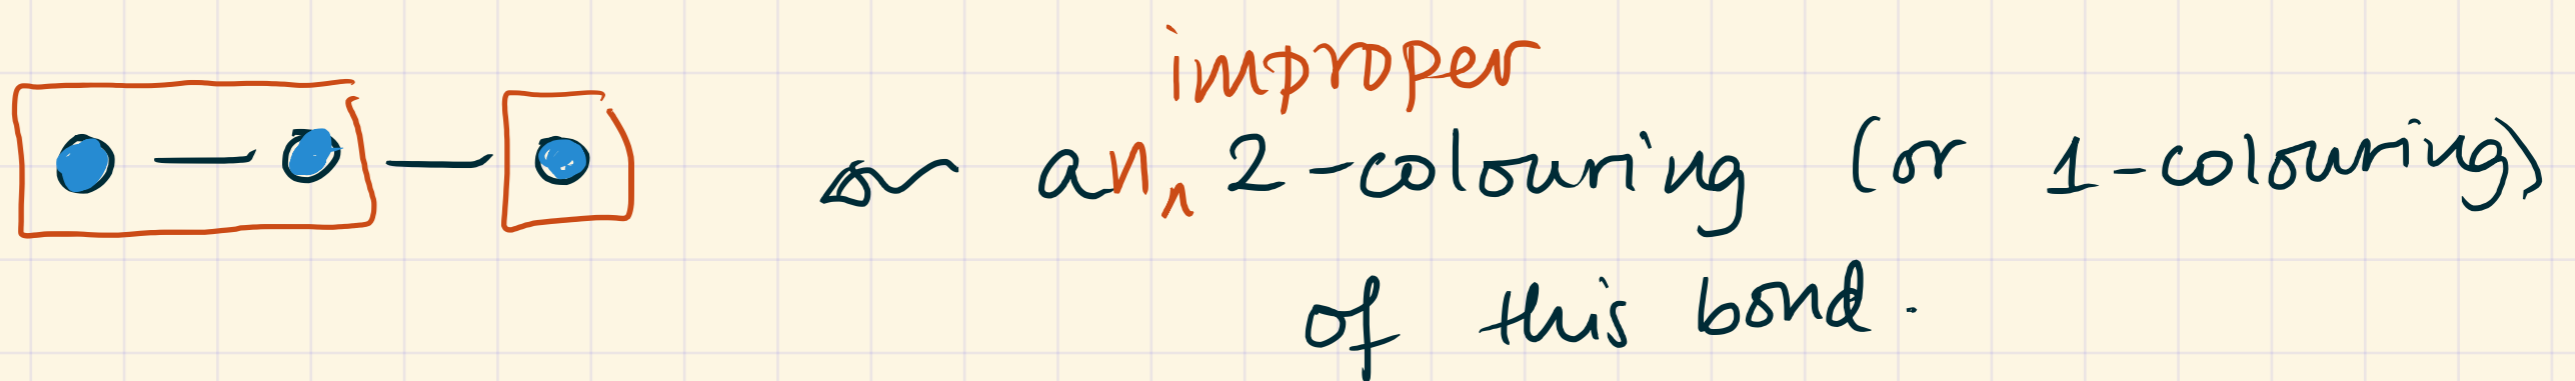 an improper 2-colouring (or 1-colouring)
of this bond.